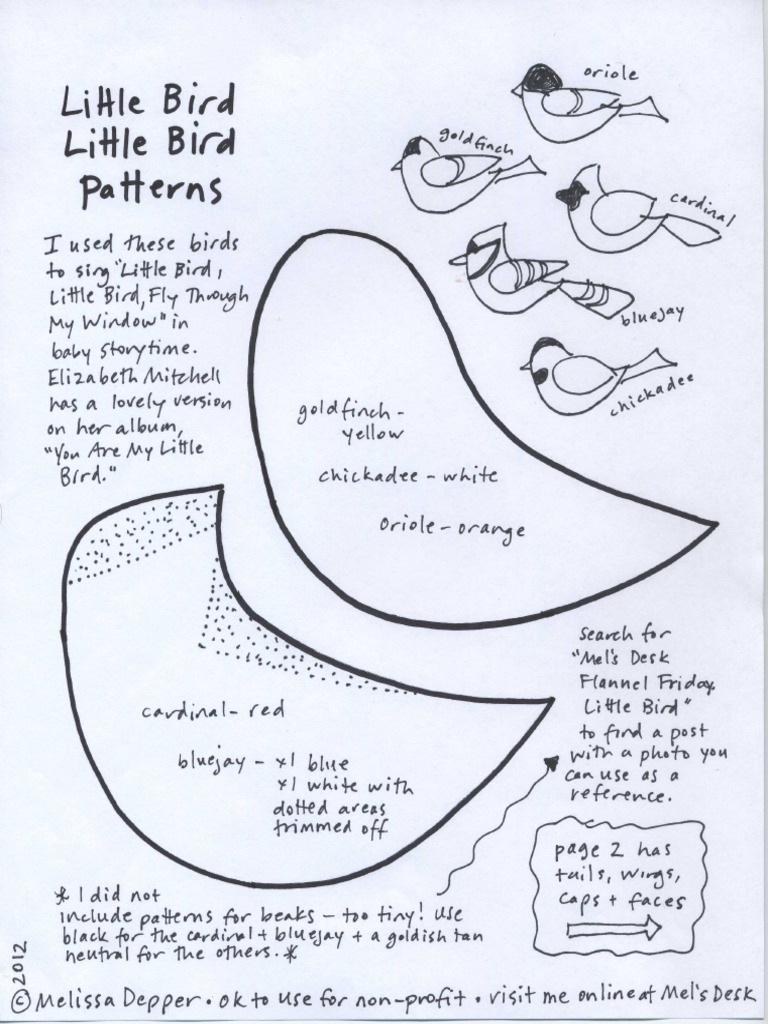 Little Bird
Little Bird
Patterns
oriole
goldfinch
cardinal
bluejay
chickadee
I used these birds
to sing "Little Bird,
Little Bird, Fly Through
My Window" in
baby storytime.
Elizabeth Mitchell
has a lovely version
on her album,
"You Are My Little
Bird."
goldfinch -
yellow
chickadee - white
Oriole - orange
cardinal - red
bluejay - x1 blue
x1 white with
dotted areas
trimmed off
search for
"Mel's Desk
Flannel Friday
Little Bird"
to find a post
with a photo you
can use as a
reference.
page 2 has
tails, wings,
caps + faces
* I did not
include patterns for beaks - too tiny! Use
black for the cardinal + bluejay + a goldish tan
neutral for the others. *
2012
© Melissa Depper • ok to use for non-profit • visit me online at Mel's Desk